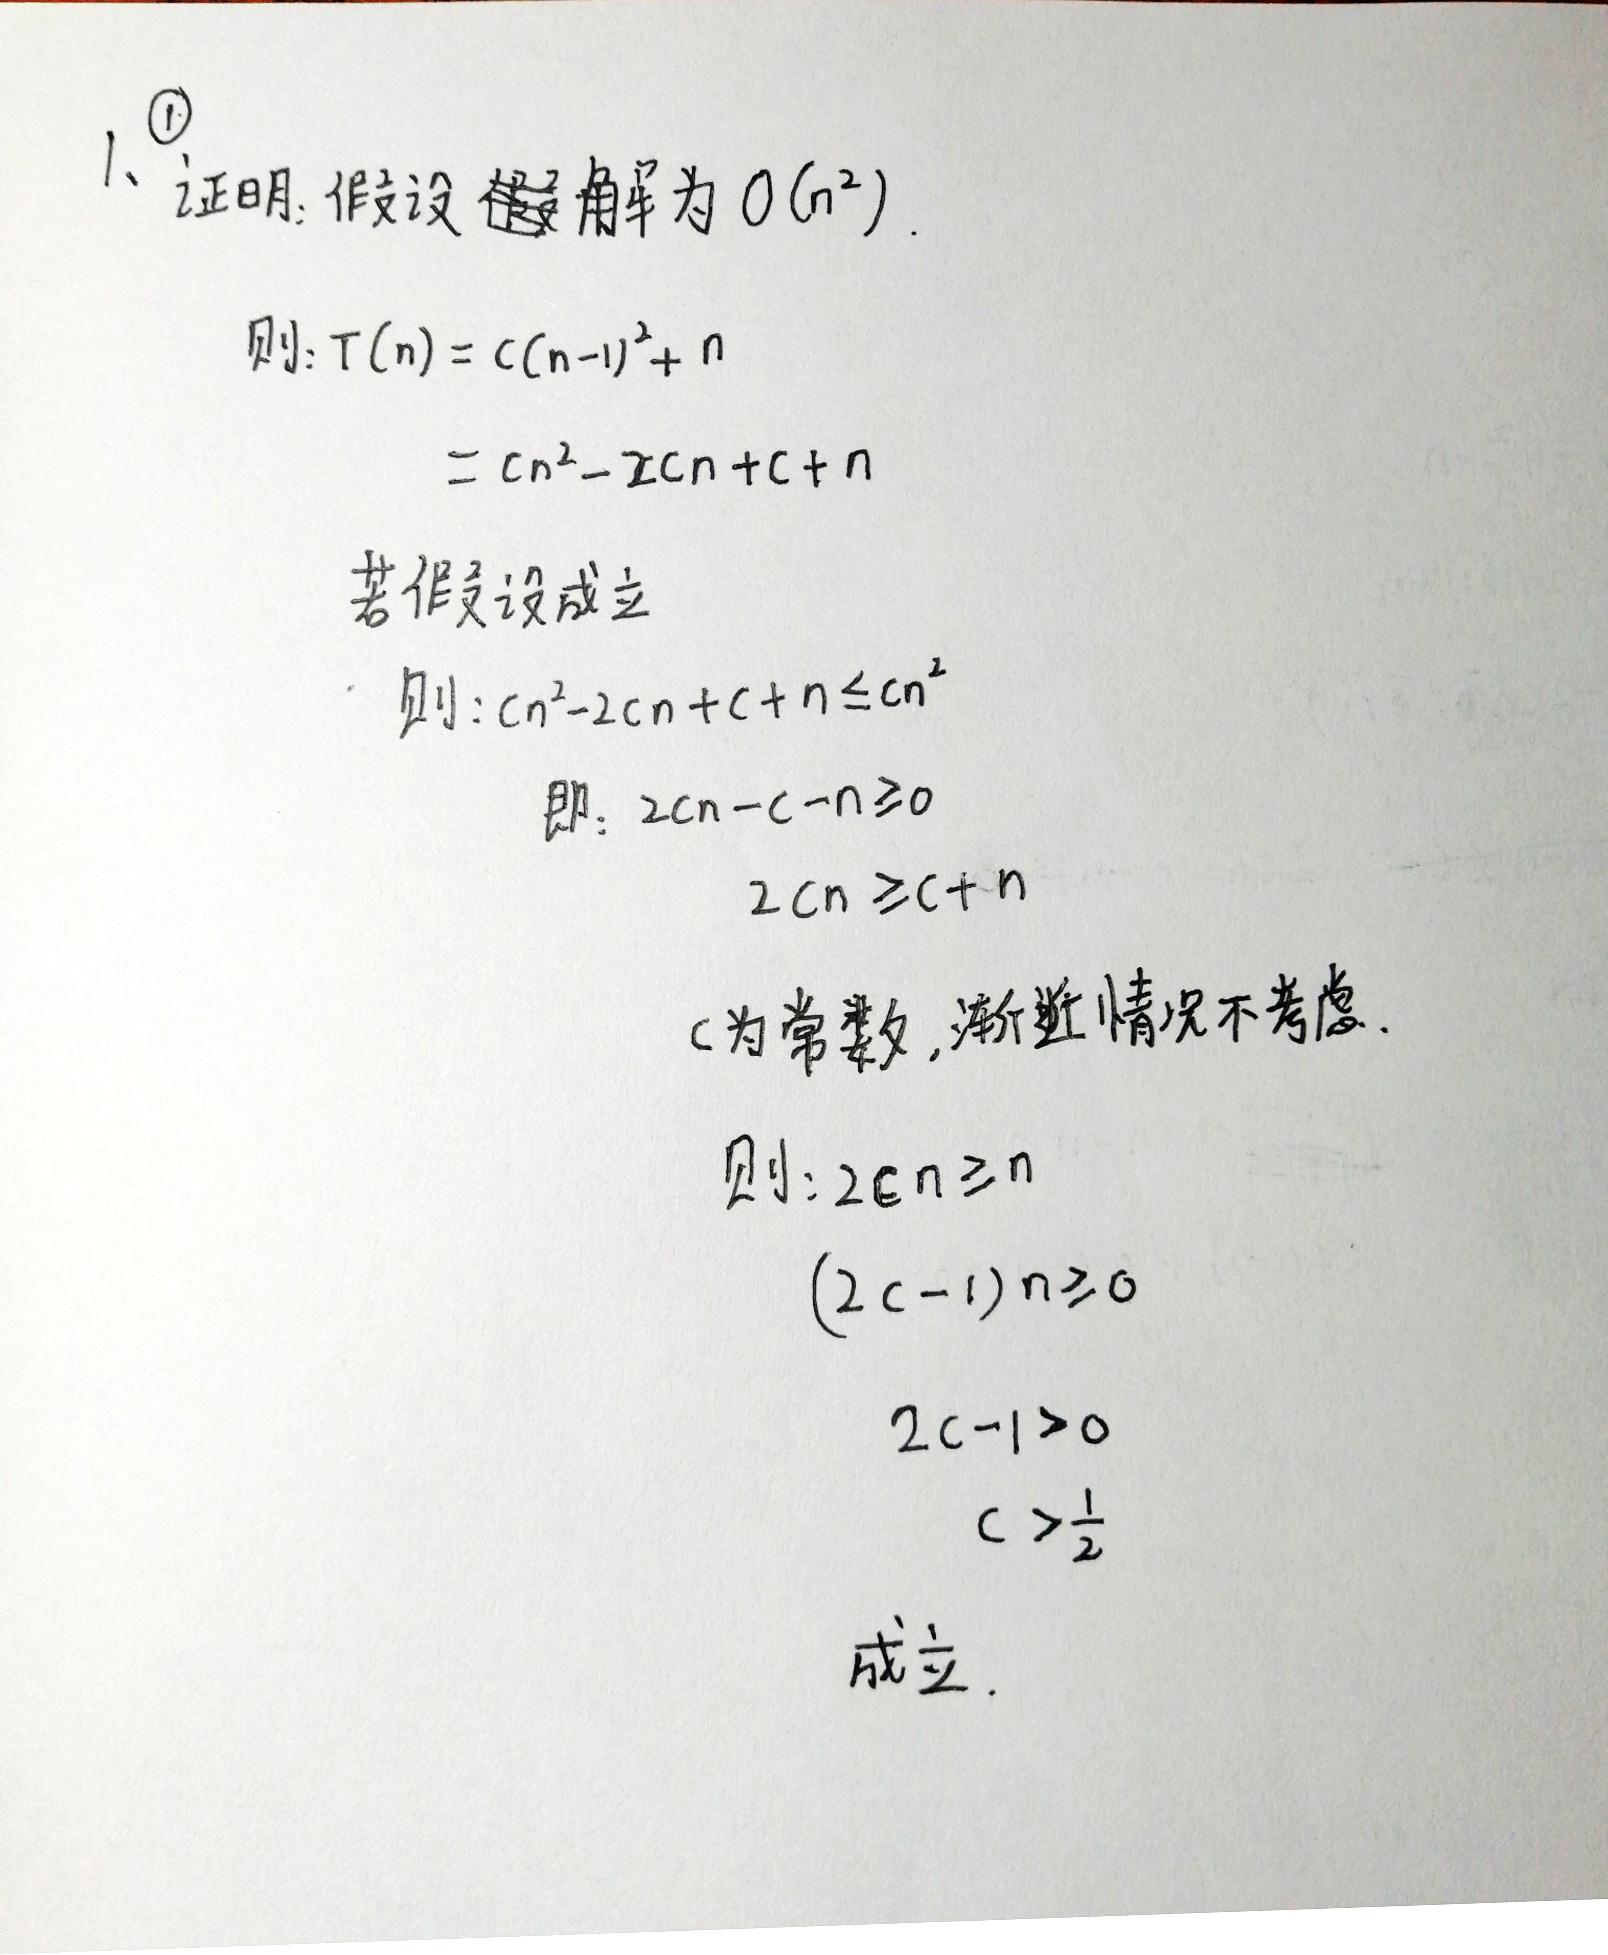 1、① 证明: 假设 解为 O(n²).
则: T(n) = c(n-1)² + n
= cn² - 2cn + c + n
若假设成立
则: cn² - 2cn + c + n ≤ cn²
即: 2cn - c - n ≥ 0
2cn ≥ c + n
c为常数, 渐近情况不考虑.
则: 2cn ≥ n
(2c - 1) n ≥ 0
2c - 1 > 0
c > 1/2
成立.